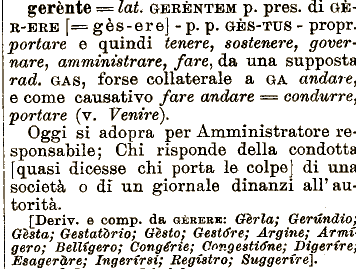 gerènte = lat. GERÈNTEM p. pres. di GÈ-
R-ERE [= gès-ere] - p. p. GÈS-TUS - propr.
portare e quindi tenere, sostenere, gover-
nare, amministrare, fare, da una supposta
rad. GAS, forse collaterale a GA andare,
e come causativo fare andare = condurre,
portare (v. Venire).
Oggi si adopra per Amministratore re-
sponsabile; Chi risponde della condotta
[quasi dicesse chi porta le colpe] di una
società o di un giornale dinanzi all'au-
torità.
[Deriv. e comp. da GÈRERE: Gèrla; Gerúndio;
Gèsta; Gestatòrio; Gèsto; Gestóre; Argine; Armí-
gero; Bellígero; Congérie; Congestióne; Digerire;
Esageràre; Ingerírsi; Registro; Suggerire].